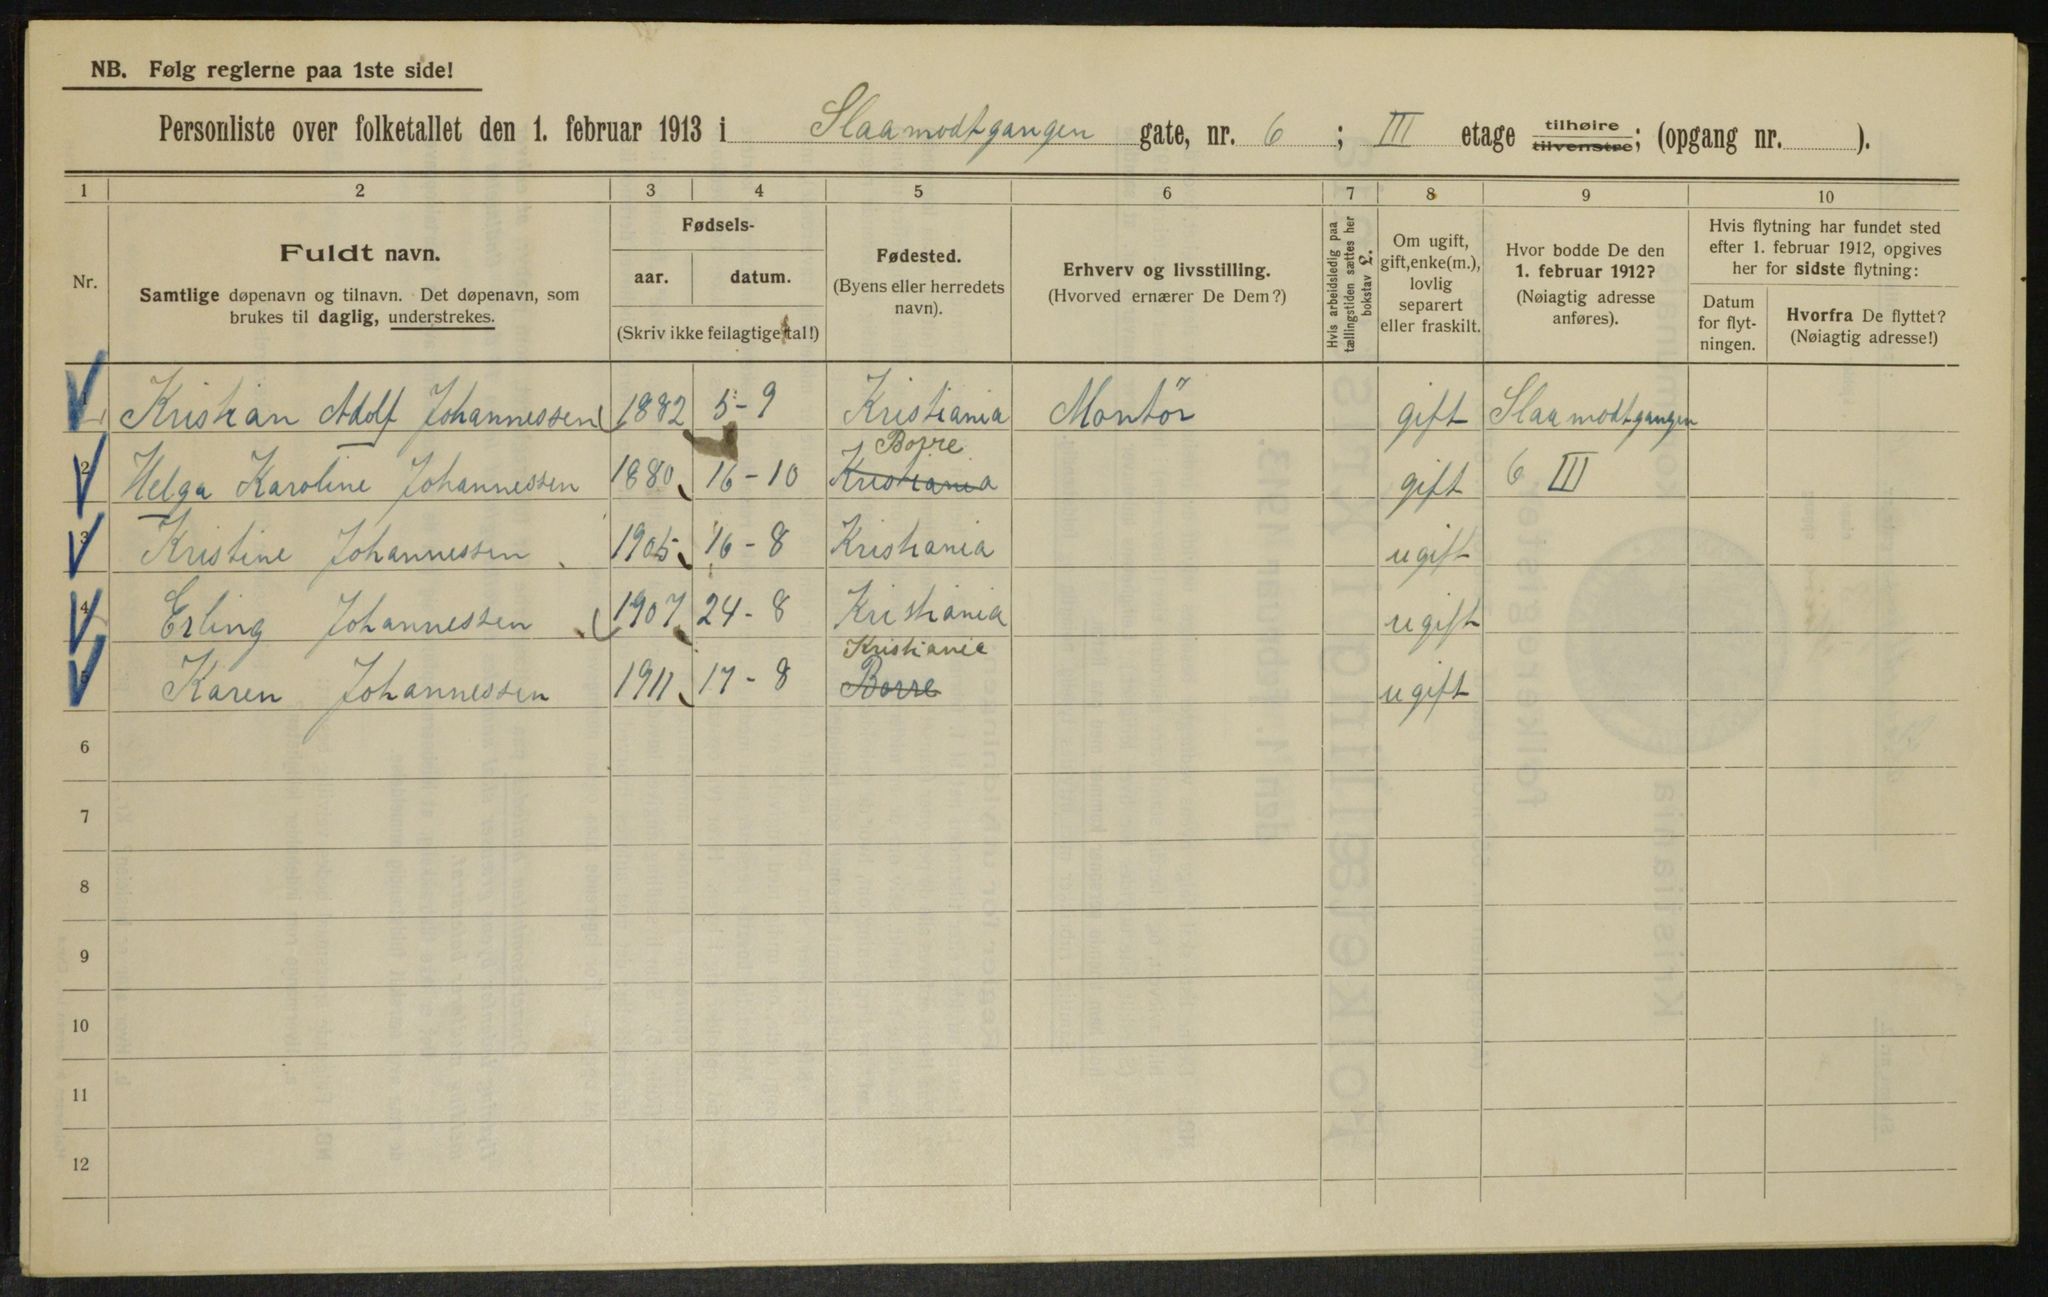 NB. Følg reglerne paa 1ste side!
Personliste over folketallet den 1. februar 1913 i Slaamodtgangen gate, nr. 6 ; III etage tilhøire tilvenstre; (opgang nr. ).
1 2 3 4 5 6 7 8 9 10
Nr.
Fuldt navn.
Samtlige døpenavn og tilnavn. Det døpenavn, som
brukes til daglig, understrekes.
Fødsels-
aar. datum.
(Skriv ikke feilagtige tal!)
Fødested.
(Byens eller herredets
navn).
Erhverv og livsstilling.
(Hvorved ernærer De Dem?)
Hvis arbeidsledig paa
tællingstiden sættes her
bokstav L.
Om ugift,
gift, enke(m.),
lovlig
separert
eller fraskilt.
Hvor bodde De den
1. februar 1912?
(Nøiagtig adresse
anføres).
Hvis flytning har fundet sted
efter 1. februar 1912, opgives
her for sidste flytning:
Datum
for flyt-
ningen.
Hvorfra De flyttet?
(Nøiagtig adresse!)
1 Kristian Adolf Johannessen 1882 5-9 Kristiania Montör gift Slaamodtgangen
Borre
2 Helga Karoline Johannessen 1880 16-10 Kristiania gift 6 III
3 Kristine Johannessen 1905 16-8 Kristiania ugift
4 Erling Johannessen 1907 24-8 Kristiania ugift
Kristiania
5 Karen Johannessen 1911 17-8 Borre ugift
6
7
8
9
10
11
12